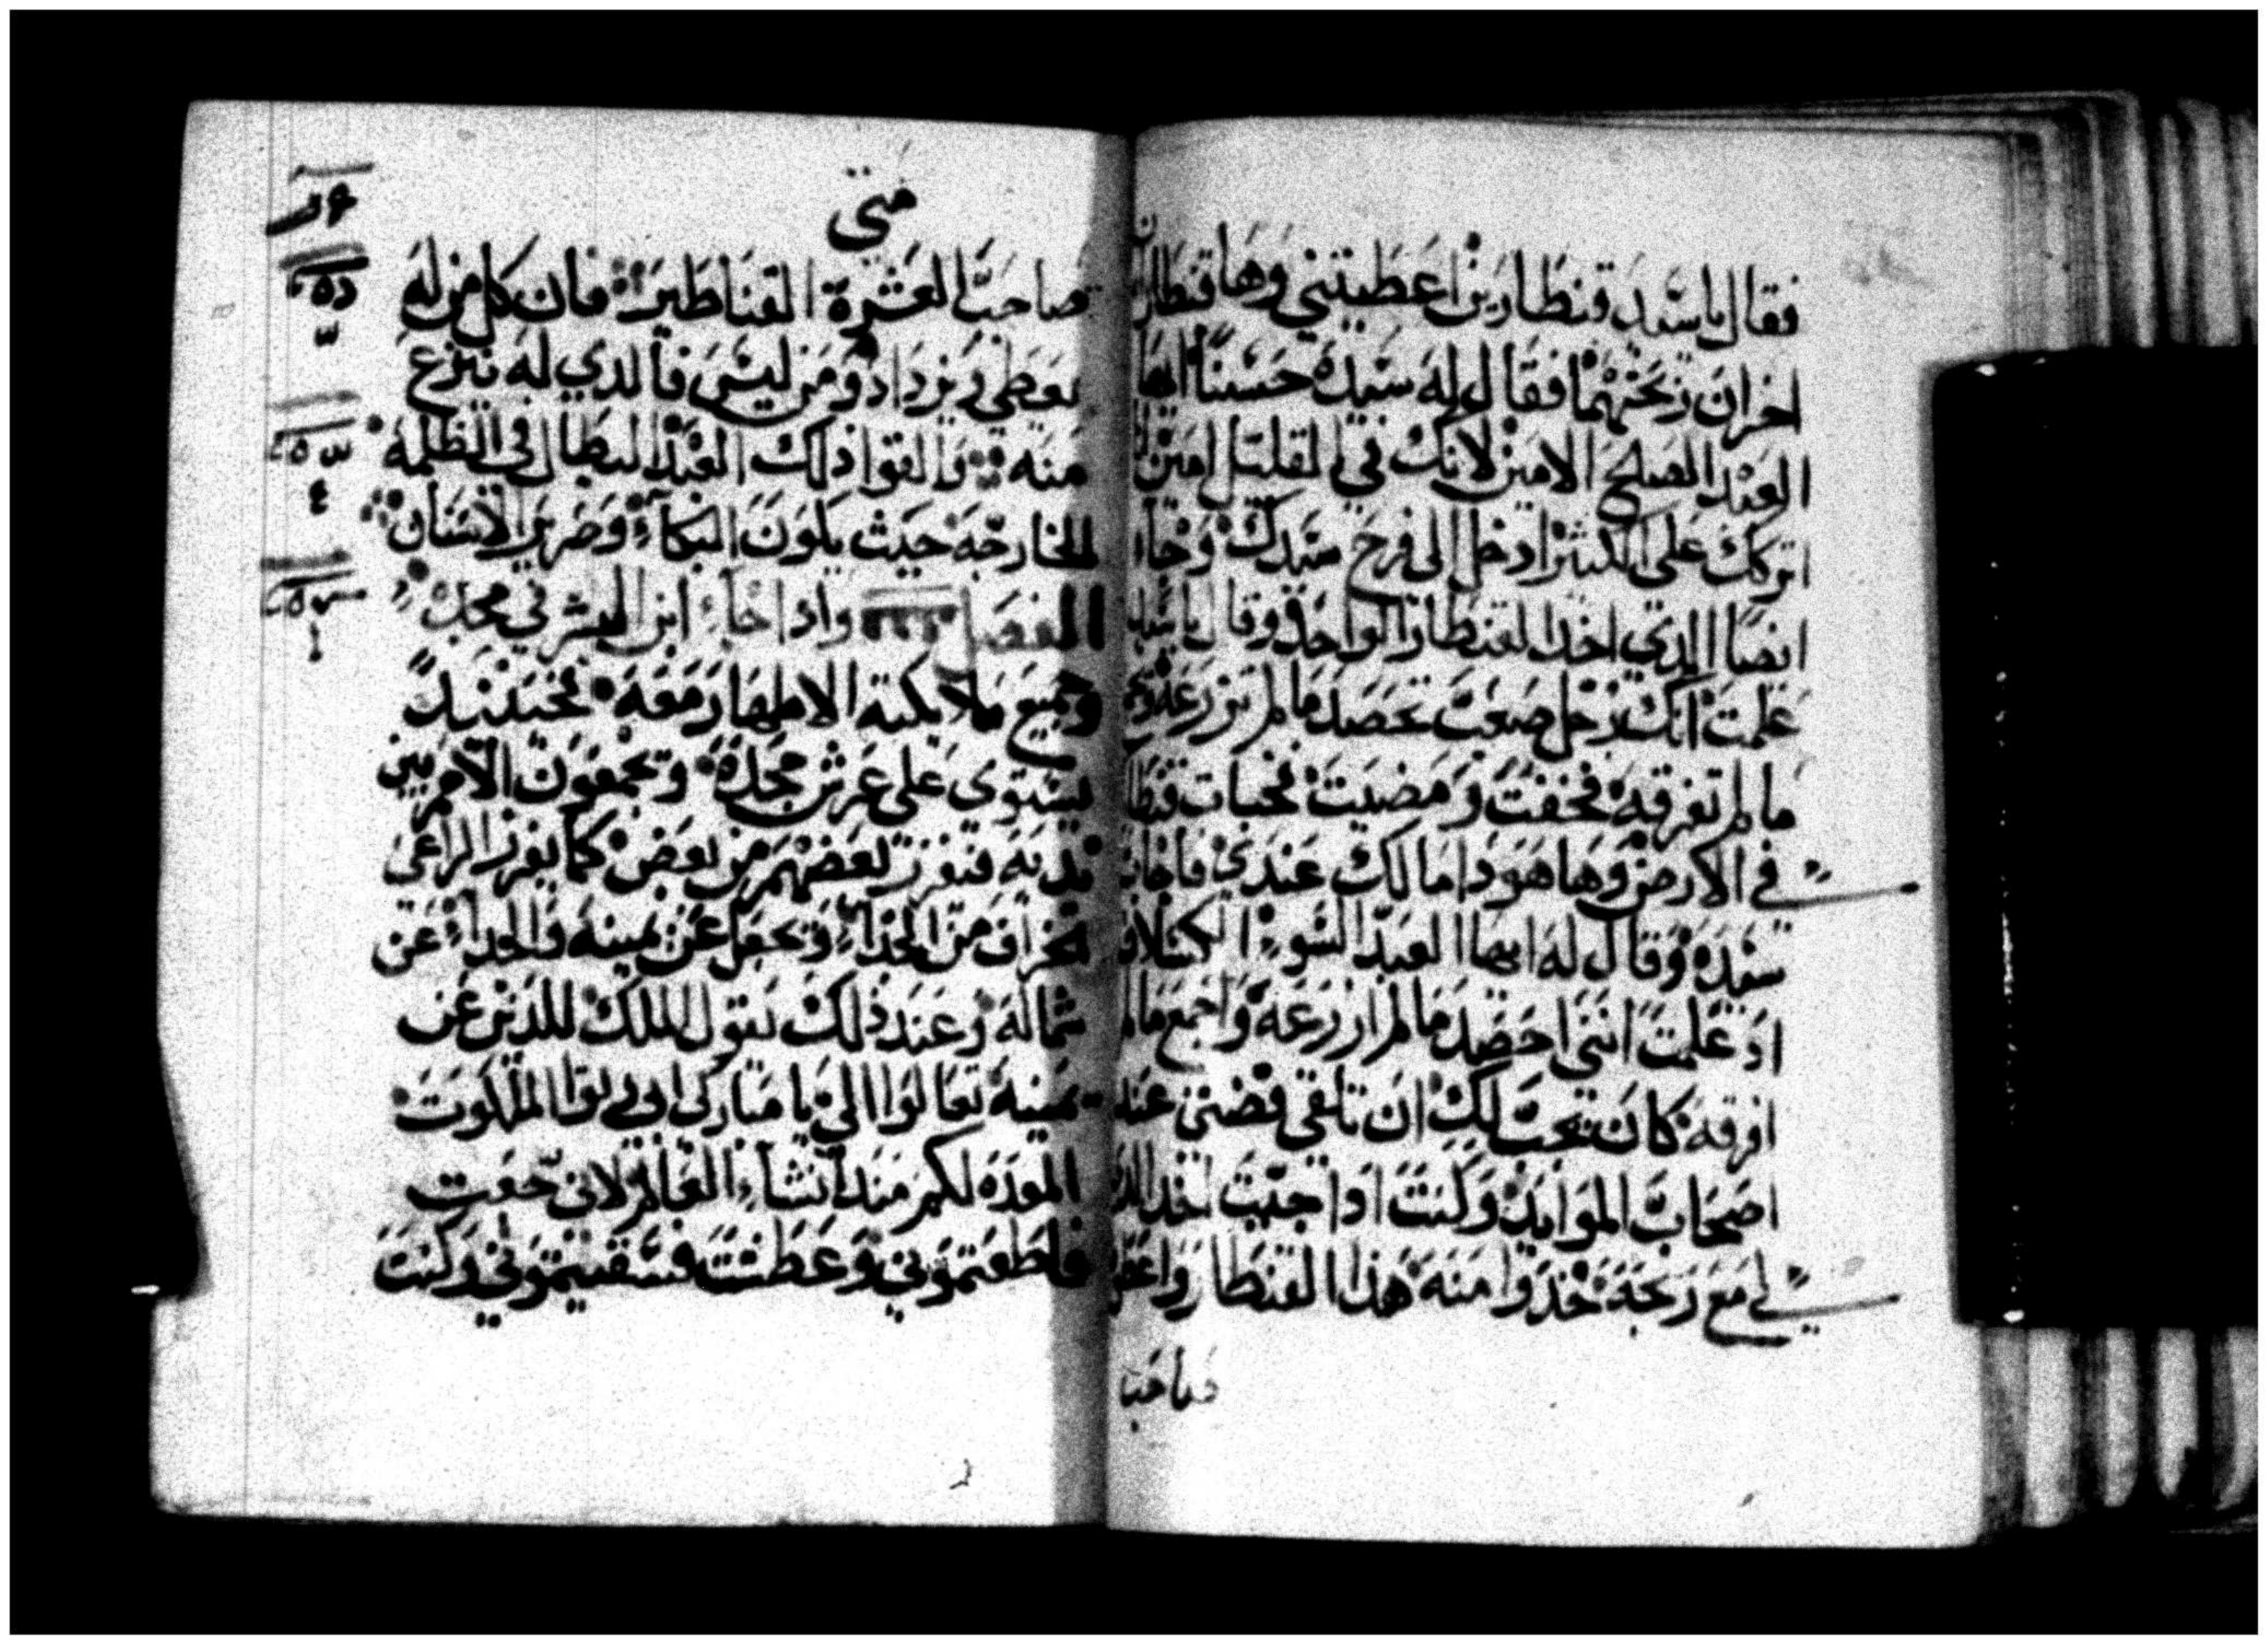 فقال يا سيد قنطارين اعطيتني وها قنطاران
اخران ربحتهما فقال له سيده حسنا ايها
العبد الصلح الامين لانك في القليل امين
اتركك على الكثير ادخل الى فرح سيدك وجاء
ايضا الدي اخد القنطار الواحد وقال يا سيد
علمت انك رجل صعب تحصد ما لم تزرعه وتجمع
ما لم تفرقه فخفت ومضيت فخبات قنطارك
في الارض وها هو دا مالك عندي فاجاب
سيده وقال له ايها العبد السوء الكسلان
اد علمت انني احصد ما لم ازرعه واجمع ما لم
افرقه كان يجب لك ان تلقي فضتي عند
اصحاب الموايد وكنت ادا جيت اخد الدي
لي مع ربحه خدوا منه هذا القنطار واعطوا
صاحب
متي
صاحب العشرة القناطير فان كل من له
يعطي ويزداد ومن ليس فالدي له ينزع
منه والقوا ذلك العبد البطال في الظلمة
الخارجه حيث يكون البكاء وضرير الاسنان
الفصل وادا جاء ابن البشر في مجده
وجميع ملايكته الاطهار معه فحينيد
يستوي على عرش مجده وتجمعون الامم بين
يديه فيفرز بعضهم من بعض كما يفرز الراعي
الخراف من الجداء ويجعل عن يمينه والجداء عن
شماله وعند ذلك يقول الملك للدين عن
يمينه تعالوا الي يا مباركي ابي رتوا الملكوت
المعده لكم مند انشاء العالم لاني جعت
فاطعمتموني وعطشت فسقيتموني وكنت